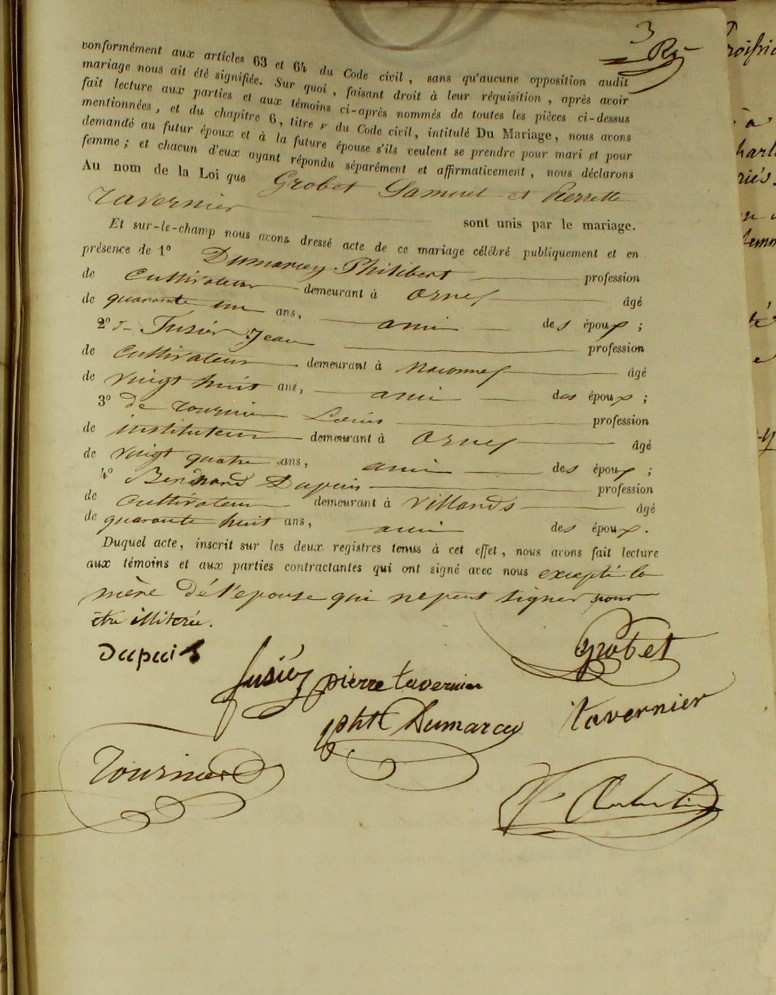 3
conformément aux articles 63 et 64 du Code civil, sans qu'aucune opposition audit
mariage nous ait été signifiée. Sur quoi, faisant droit à leur réquisition, après avoir
fait lecture aux parties et aux témoins ci-après nommés de toutes les pièces ci-dessus
mentionnées, et du chapitre 6, titre v du Code civil, intitulé Du Mariage, nous avons
demandé au futur époux et à la future épouse s'ils veulent se prendre pour mari et pour
femme; et chacun d'eux ayant répondu séparément et affirmativement, nous déclarons
Au nom de la Loi que Grobet Samuel et Pierrette
Tavernier sont unis par le mariage.
Et sur-le-champ nous avons dressé acte de ce mariage célébré publiquement et en
présence de 1° Dumarcey Philibert profession
de cultivateur demeurant à Ornex âgé
de quarante un ans, ami des époux;
2° Fusier Jean profession
de cultivateur demeurant à âgé
de vingt huit ans, ami des époux;
3° de Tournier Louis profession
de instituteur demeurant à Ornex âgé
de vingt quatre ans, ami des époux;
4° Dupuis profession
de cultivateur demeurant à Villards âgé
de quarante huit ans, ami des époux.
Duquel acte, inscrit sur les deux registres tenus à cet effet, nous avons fait lecture
aux témoins et aux parties contractantes qui ont signé avec nous excepté la
mère de l'epouse qui ne peut signer pour
être illitérée.
Dupuis
Grobet
fusier
pierre tavernier
phte Dumarcey
tavernier
Tournier